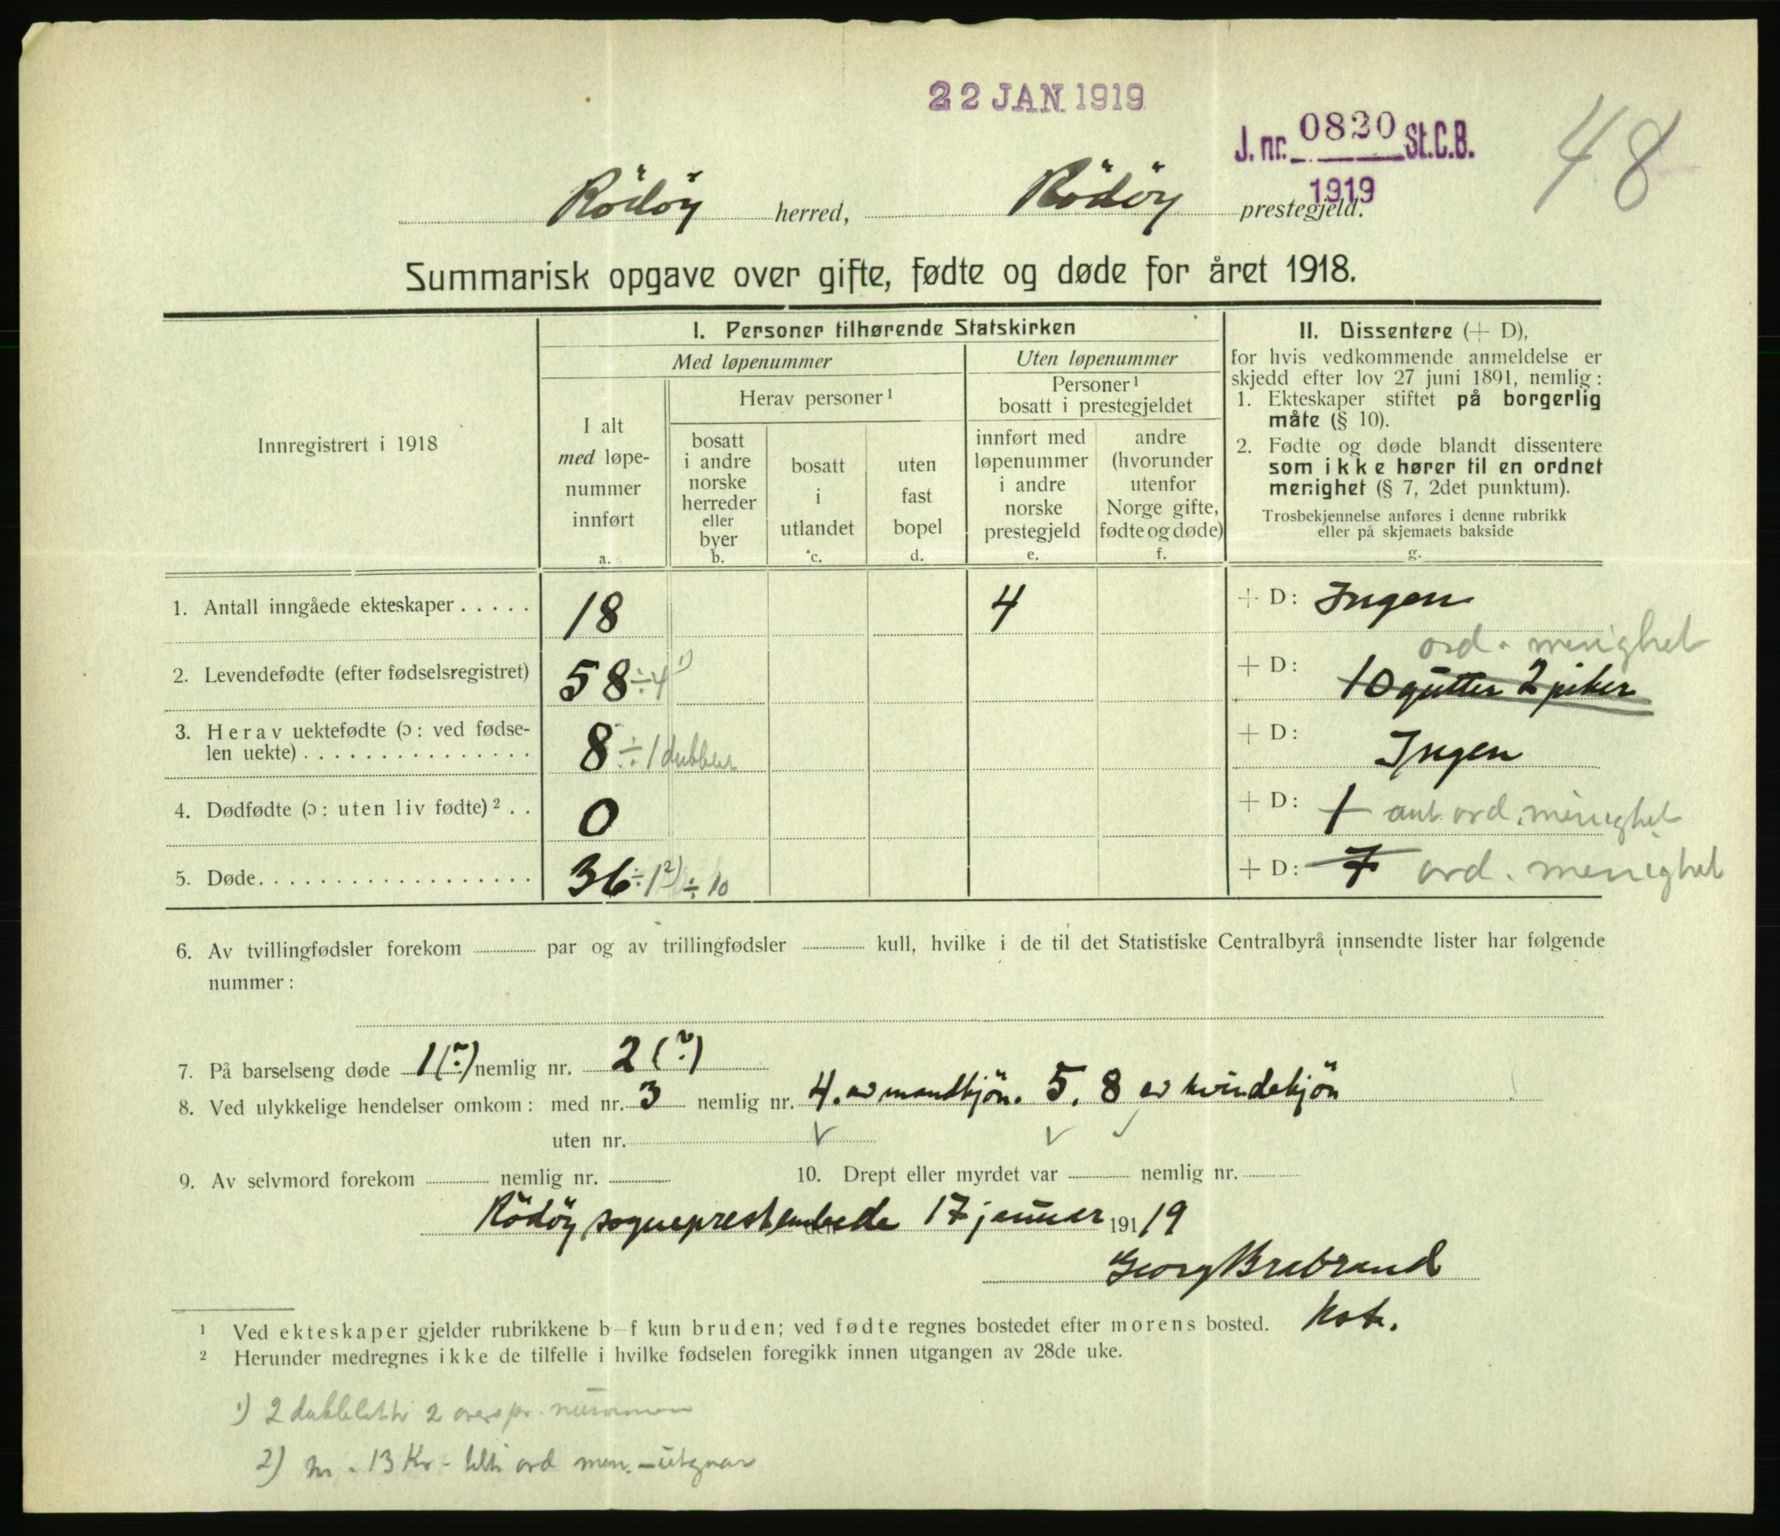 22 JAN. 1919
J. nr. 0820 St.C.B.
1919
48
Rödöy herred, Rödöy prestegjeld.
Summarisk opgave over gifte, fødte og døde for året 1918.
Innregistrert i 1918
I. Personer tilhørende Statskirken
Med løpenummer
Uten løpenummer
I alt
med løpe-
nummer
innført
a.
Herav personer ¹
bosatt
i andre
norske
herreder
eller
byer
b.
bosatt
i
utlandet
c.
uten
fast
bopel
d.
Personer ¹
bosatt i prestegjeldet
innført med
løpenummer
i andre
norske
prestegjeld
e.
andre
(hvorunder
utenfor
Norge gifte,
fødte og døde)
f.
II. Dissentere (+ D),
for hvis vedkommende anmeldelse er
skjedd efter lov 27 juni 1891, nemlig:
1. Ekteskaper stiftet på borgerlig
måte (§ 10).
2. Fødte og døde blandt dissentere
som ikke hører til en ordnet
menighet (§ 7, 2det punktum).
Trosbekjennelse anføres i denne rubrikk
eller på skjemaets bakside
g.
1. Antall inngåede ekteskaper ..... 18 4 + D: Ingen
ord. menighet
2. Levendefødte (efter fødselsregistret) 58 ÷ 4 ¹) + D: 10 gutter 2 piker
3. Herav uektefødte (ɔ: ved fødse-
len uekte) ............... 8 ÷ 1 dubblet + D: Ingen
4. Dødfødte (ɔ: uten liv fødte) ² .. 0 + D: 1 ant. ord. menighet
5. Døde.................. 36 ÷ 1 ²) ÷ 10 + D: 7 ord. menighet
6. Av tvillingfødsler forekom par og av trillingfødsler kull, hvilke i de til det Statistiske Centralbyrå innsendte lister har følgende
nummer:
7. På barselseng døde 1 (?) nemlig nr. 2 (?)
8. Ved ulykkelige hendelser omkom: med nr. 3 nemlig nr. 4. av mandkjön. 5, 8 av kvindekjön
uten nr.
9. Av selvmord forekom nemlig nr. 10. Drept eller myrdet var nemlig nr.
Rödöy sogneprestembede den 17 januar 191 19
Georg Brabrand
Kst.
¹ Ved ekteskaper gjelder rubrikkene b–f kun bruden; ved fødte regnes bostedet efter morens bosted.
² Herunder medregnes ikke de tilfelle i hvilke fødselen foregikk innen utgangen av 28de uke.
1) 2 dubletter 2 overspr. nummer
2) nr. 13 Kv. ord. men. – utgaar